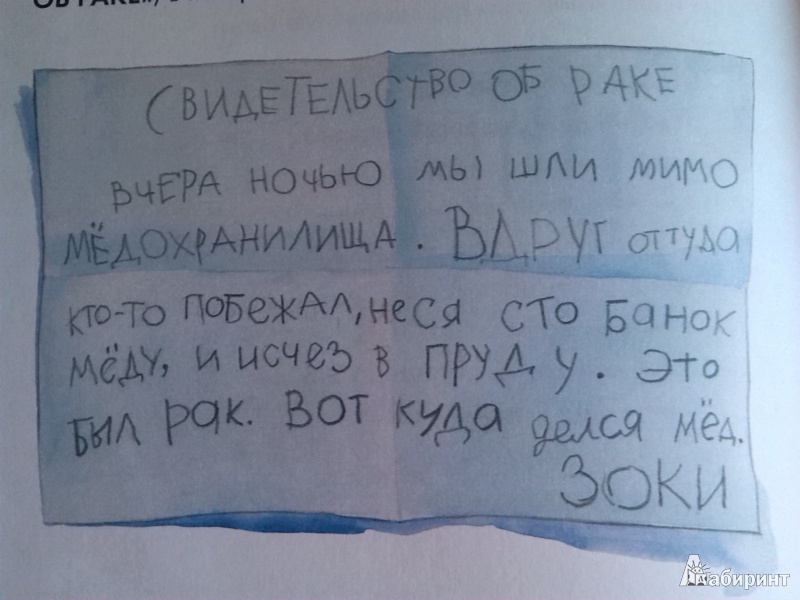 СВИДЕТЕЛЬСТВО ОБ РАКЕ
ВЧЕРА НОЧЬЮ МЫ ШЛИ МИМО
МЁДОХРАНИЛИЩА. ВДРУГ ОТТУДА
КТО-ТО ПОБЕЖАЛ, НЕСЯ СТО БАНОК
МЁДУ, И ИСЧЕЗ В ПРУДУ. ЭТО
БЫЛ РАК. ВОТ КУДА ДЕЛСЯ МЁД.
ЗОКИ
Лабиринт